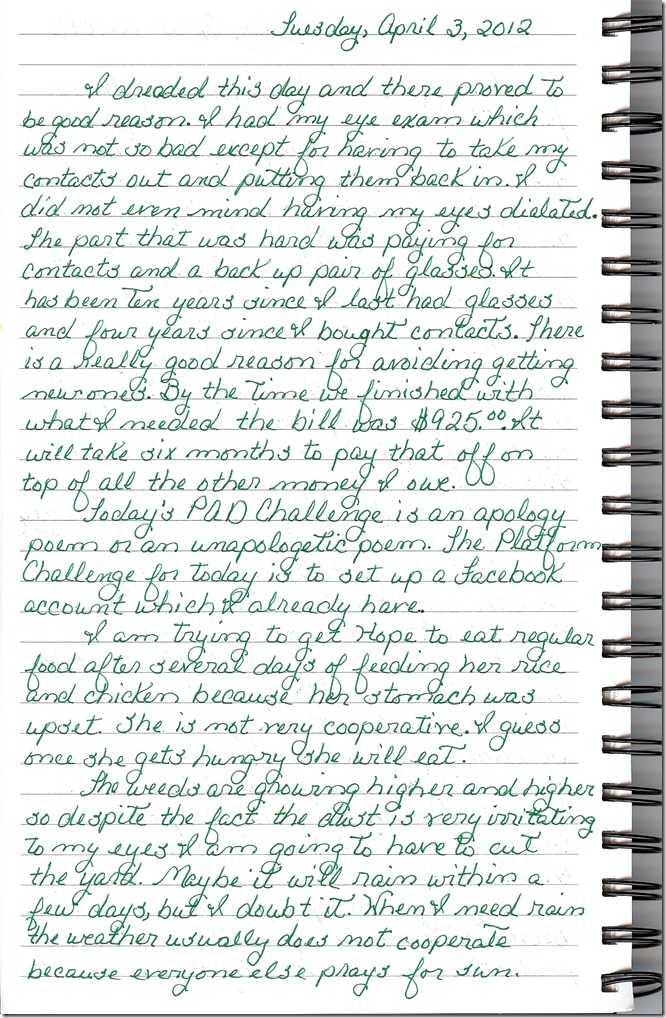 Tuesday, April 3, 2012
I dreaded this day and there proved to
be good reason. I had my eye exam which
was not so bad except for having to take my
contacts out and putting them back in. I
did not even mind having my eyes dialated.
The part that was hard was paying for
contacts and a back up pair of glasses. It
has been ten years since I last had glasses
and four years since I bought contacts. There
is a really good reason for avoiding getting
new ones. By the time we finished with
what I needed the bill was $925.00. It
will take six months to pay that off on
top of all the other money I owe.
Today's PAD Challenge is an apology
poem or an unapologetic poem. The Platform
Challenge for today is to set up a Facebook
account which I already have.
I am trying to get Hope to eat regular
food after several days of feeding her rice
and chicken because her stomach was
upset. She is not very cooperative. I guess
once she gets hungry she will eat.
The weeds are growing higher and higher
so despite the fact the dust is very irritating
to my eyes I am going to have to cut
the yard. Maybe it will rain within a
few days, but I doubt it. When I need rain
the weather usually does not cooperate
because everyone else prays for sun.